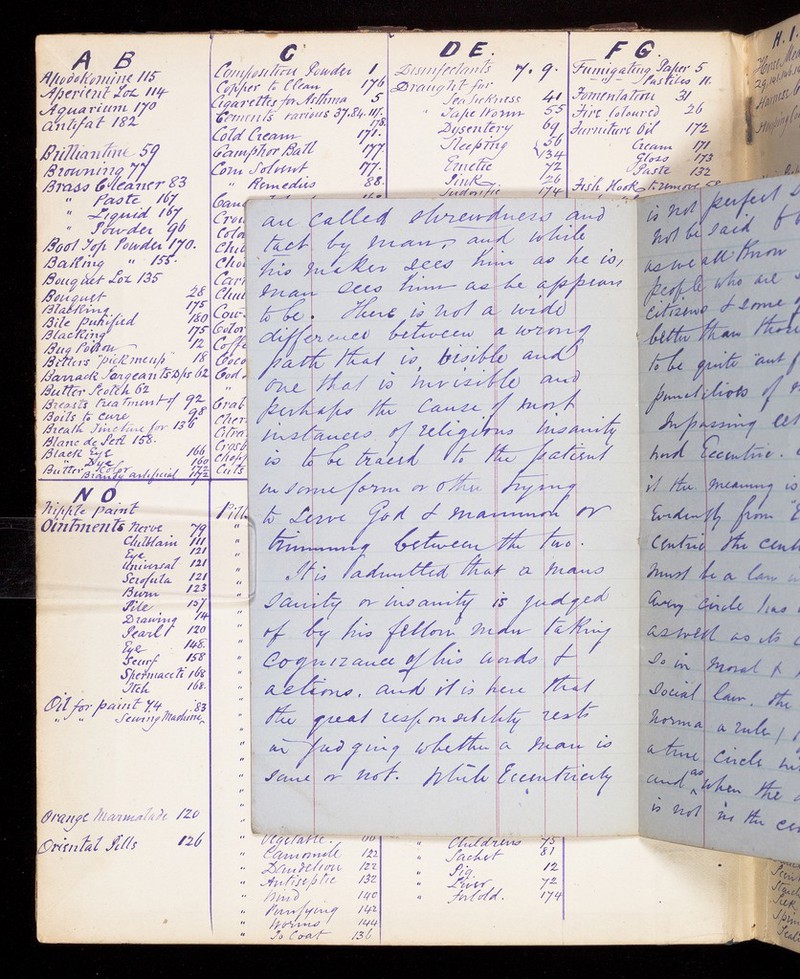 A B
Apodokomine 115
Aperient Loz 114
Aquarium 170
Antifat 182
Brilliantine 59
Browning 77
Brass Cleaner 83
" Paste 167
" Liquid 167
" Powder 96
Boot Top Powder 170.
Baking " 155.
Bouquet Loz 135
Bouquet 28
Blacking 175
Bile purified 180
Blacking 175
Bug Poison 12
Bitters "pick me up" 18
Barrack Sergeants Dps 62
Butter Scotch 62
Breasts treatment of 92
Boils to cure 98
Breath Tincture for 136
Blanc de Perl 158.
Black Eye 166
" Dye 160
Butter Color 172
Brandy artificial 172
C
Composition Powder 1
Copper to Clean 176
Cigarettes for Asthma 5
Cements various 37.84.115.
178.
Cold Cream 171.
Camphor Ball 177
Corn Solvent 177.
" Remedies 88.
D E.
Disinfectants 7. 9.
Draught for
Sea Sickness 41
" Tape Worm 55
Dysentery 69
Sleeping 56
134
Emetic 72
Pink 126
Sudorific 174
F G.
Fumigating Paper 5
" Pastiles 11.
Fomentation 31
Fire Coloured 26
Furniture Oil 172
Cream 171
Gloss 173
Paste 132
Fish Hook to remove
H. I.
N O
Nipple paint
Ointments Nerve 79
Chilblain 111
Eye 121
Universal 121
Scrofula 121
Burn 123
Pile 157
Drawing 14
Pearl 120
Eye 148.
Scurf 158
Spermaceti 168
Itch 168.
Oil for paint 74 .83
" " Sewing Machine
Orange Marmalade 120
Oriental Pills 126
are called shrewdness and
tact by man, and while
his maker sees him as he is,
man sees him as he appears
to be. There is not a wide
difference between a wrong
path that is visible and
one that is invisible and
perhaps the cause of most
instances of religious insanity
is to be traced to the patient
in some form or other trying
to serve God & mammon or
trimming between the two.
It is admitted that a mans
sanity or insanity is judged
of by his fellow man taking
cognizance of his words &
actions, and it is here that
the great responsibility rests
in judging whether a man is
sane or not. While Eccentricity
is not perfect
not be said
as we all know
people who are
citizens & some
better than those
to be quite "out
punctilios of
In passing
word Eccentric.
it the meaning is
Evidently from "E
Centric the cent
must be a law
Every circle has
as well as its
So in moral &
Social law. The
norma a rule,
a true circle
and as when the
is not in the cen
" Vegetable. 66
" Camomile 122
" Dandelion 122
" Antiseptic 132
" Wind 140
" Purifying 142
" Worms 144
" To Coat 136
" Childrens 75
" Sachet 81
" Pig 12
" Liver 72
" for Cold. 174